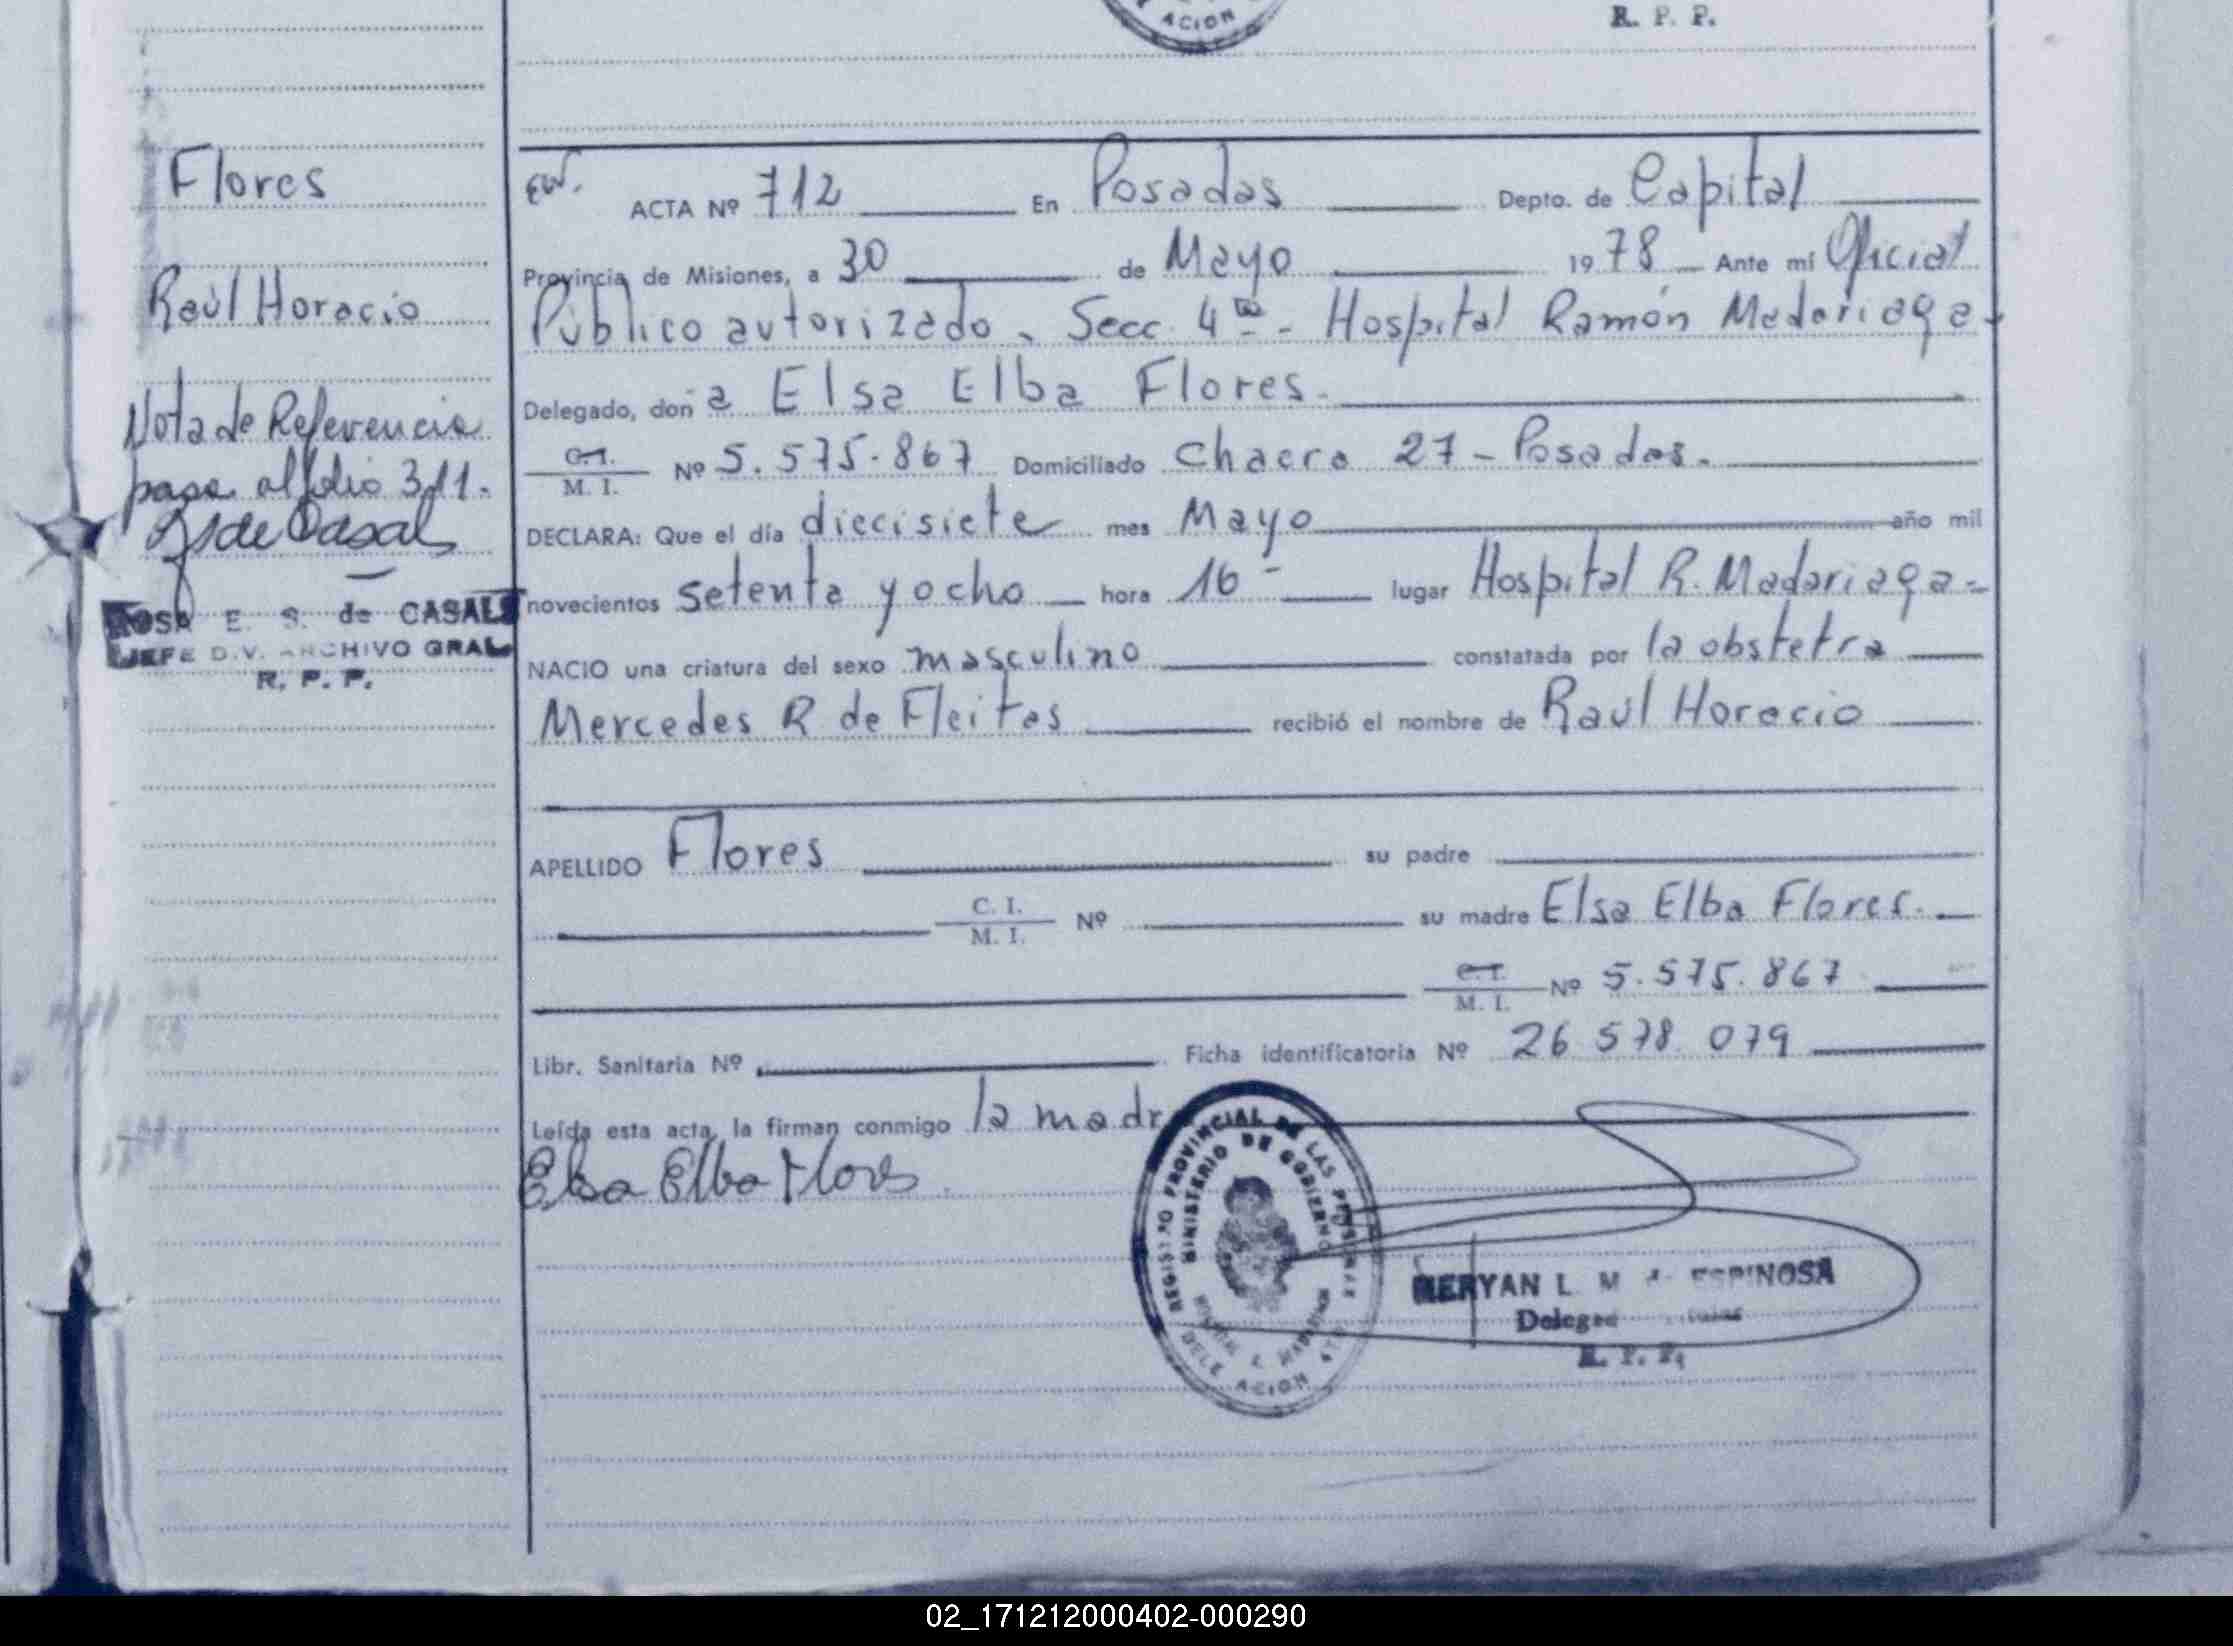 ACION
R. P. P.
Flores
Raúl Horacio
Nota de Referencia
pasa al folio 311.
ROSA E. S. de CASALS
JEFE DIV. ARCHIVO GRAL
R. P. P.
ACTA Nº 712 En Posadas Depto. de Capital
Provincia de Misiones, a 30 de Mayo 1978 Ante mí Oficial
Público autorizado, Secc. 4ta - Hospital Ramón Madariaga -
Delegado, don a Elsa Elba Flores.
C.I. M. I. Nº 5.575.867 Domiciliado Chacra 27 - Posadas.
DECLARA: Que el día diecisiete mes Mayo año mil
novecientos setenta y ocho hora 16 - lugar Hospital R. Madariaga -
NACIO una criatura del sexo masculino constatada por la obstetra
Mercedes R de Fleitas recibió el nombre de Raúl Horacio
APELLIDO Flores su padre
C. I. M. I. Nº su madre Elsa Elba Flores.
C. I. M. I. Nº 5.575.867
Libr. Sanitaria Nº Ficha identificatoria Nº 26 578 079
Leída esta acta, la firman conmigo la madr
Elsa Elba Flores
REGISTRO PROVINCIAL DE LAS PERSONAS
MINISTERIO DE GOBIERNO
DELEGACION
MERYAN L. M. de ESPINOSA
R. P. P.
02_171212000402-000290